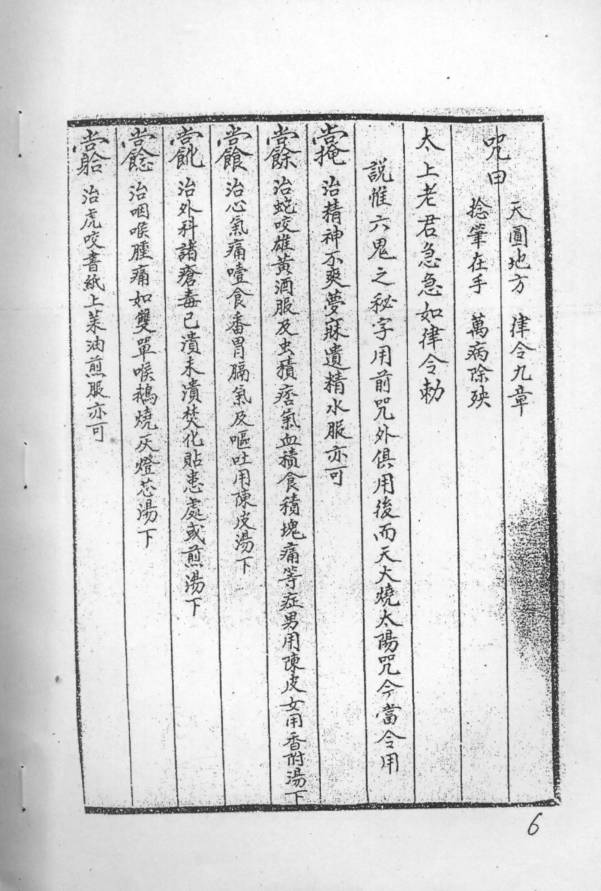 咒曰
天圓地方 律令九章
捻筆在手 萬病除殃
太上老君急急如律令勅
說惟六鬼之秘字用前咒外俱用後而天大燒太陽咒令當令用
治精神不爽夢寐遺精水服亦可
治蛇咬雄黃酒服及虫積痞氣血積食積塊痛等症男用陳皮女用香附湯下
治心氣痛噎食番胃膈氣及嘔吐用陳皮湯下
治外科諸瘡毒已潰未潰焚化貼患處或煎湯下
治咽喉腫痛如雙單喉鵝燒灰燈芯湯下
治虎咬書紙上菜油煎服亦可
6